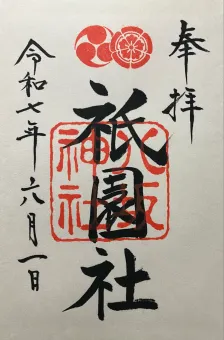 奉拝
祇園社
八坂神社
令和七年六月一日